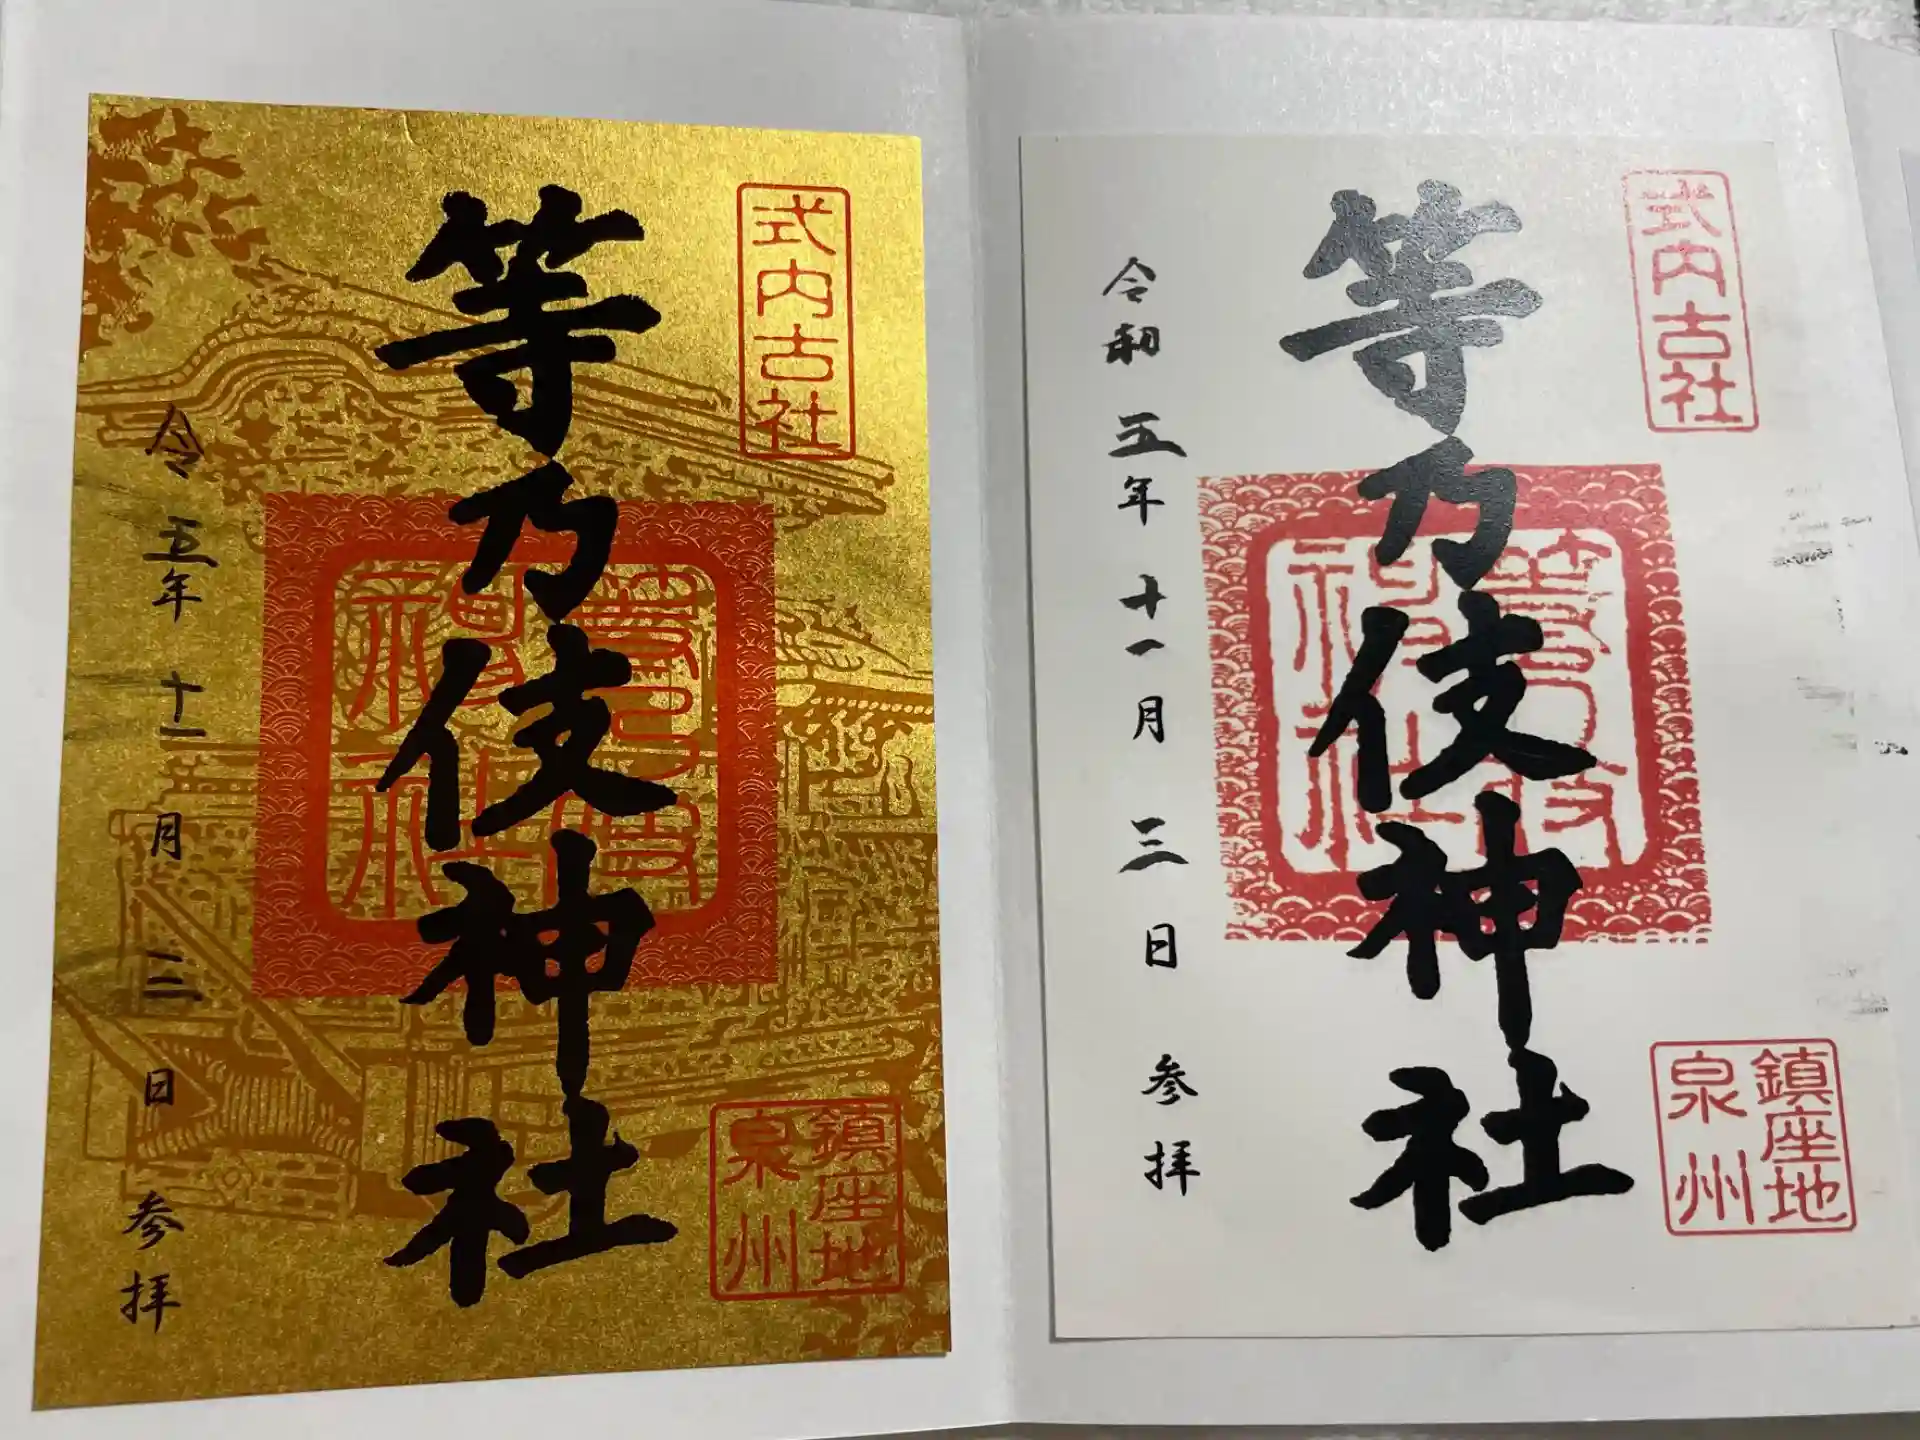 式内古社
鎮座地
泉州
等乃伎神社
等乃伎
神社
令和五年十一月三日参拝
式内古社
鎮座地
泉州
等乃伎神社
等乃伎
神社
令五年十一月三日参拝